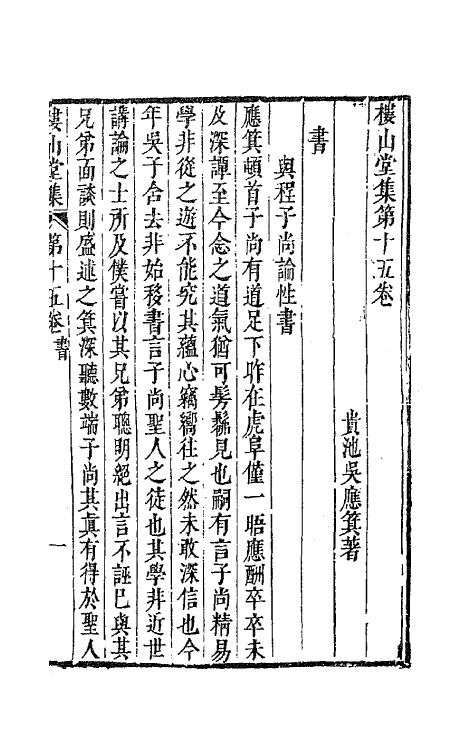 樓山堂集第十五卷
貴池吳應箕著
書
與程子尚論性書
應箕頓首子尚有道足下昨在虎阜僅一晤應酬卒卒未
及深譚至今念之道氣猶可髣髴見也嗣有言子尚精易
學非從之遊不能究其蘊心竊嚮往之然未敢深信也今
年吳子含去非始移書言子尚聖人之徒也其學非近世
講論之士所及僕嘗以其兄弟聰明絕出言不誣巳與其
兄弟面談則盛述之箕深聽數端子尚其眞有得於聖人
樓山堂集 第十五卷 書 一